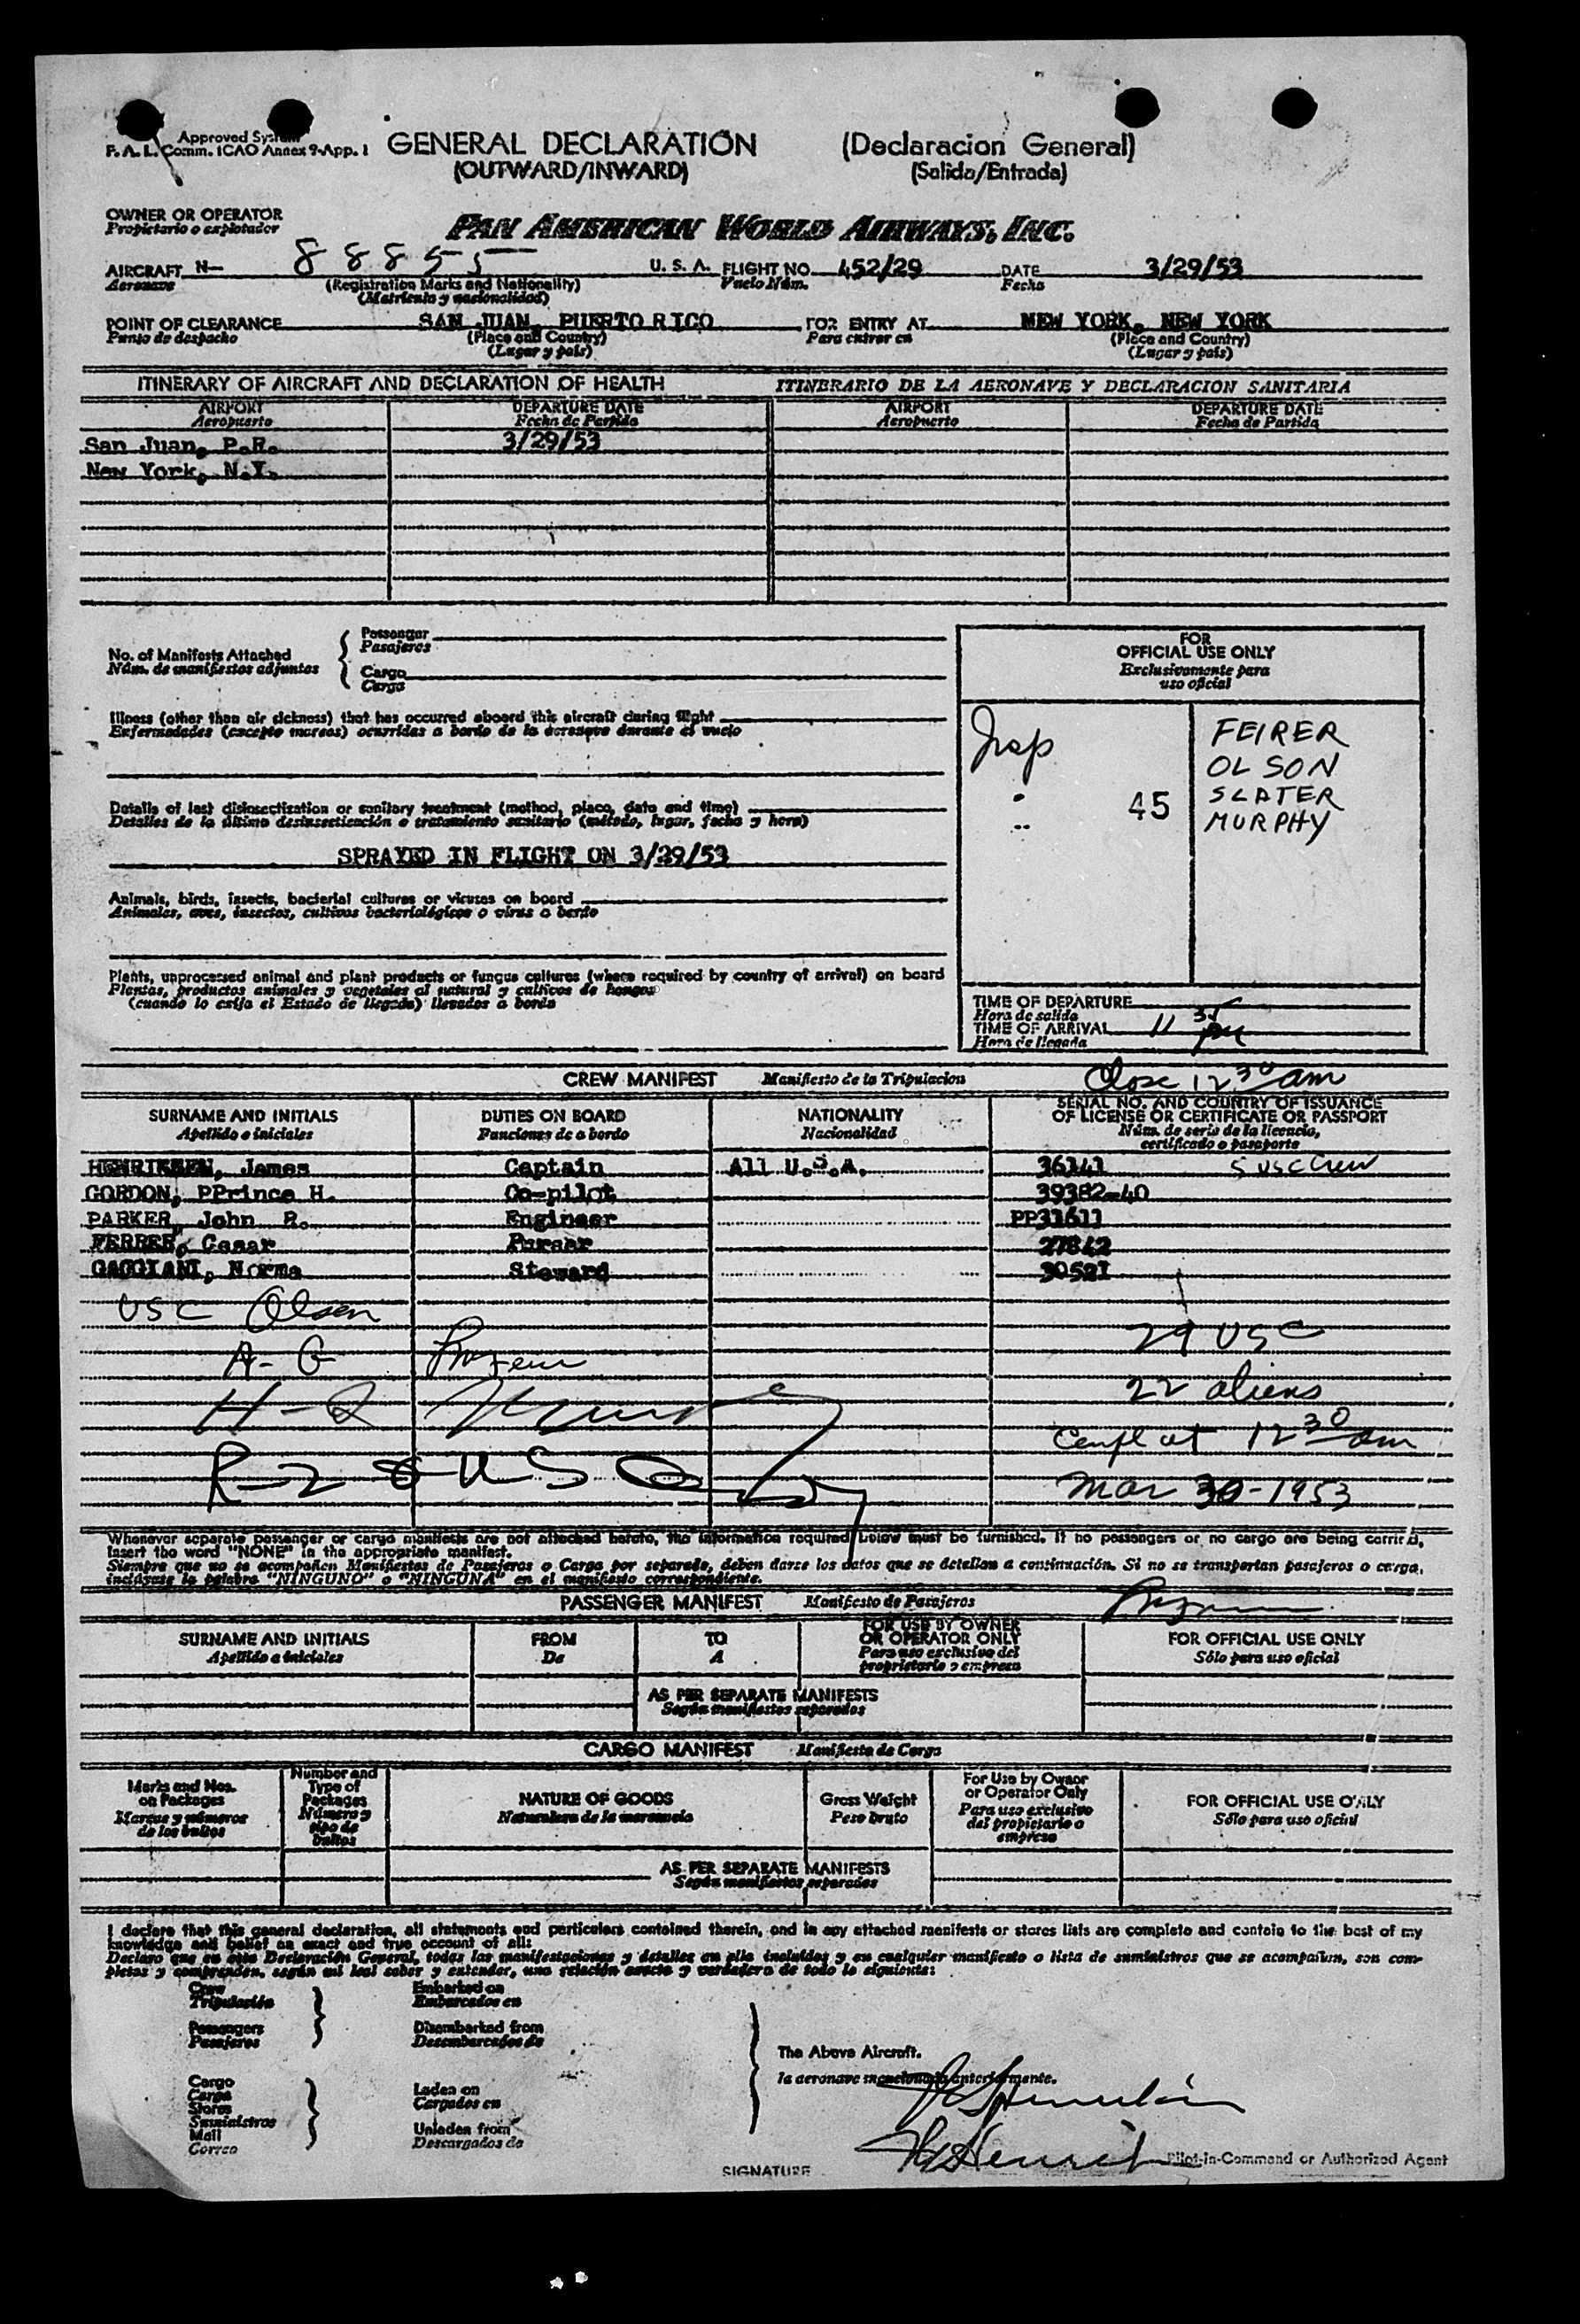 Approved System
F. A. L. Comm. ICAO Annex 9-App. 1
GENERAL DECLARATION (Declaracion General)
(OUTWARD/INWARD) (Salida/Entrada)
OWNER OR OPERATOR
Propietario o explotador
PAN AMERICAN WORLD AIRWAYS, INC.
AIRCRAFT N- 88855 U. S. A. FLIGHT NO. 452/29 DATE 3/29/53
Aeronave (Registration Marks and Nationality) Vuelo Núm. Fecha
(Matricula y nacionalidad)
POINT OF CLEARANCE SAN JUAN, PUERTO RICO FOR ENTRY AT NEW YORK, NEW YORK
Punto de despacho (Place and Country) Para entrar en (Place and Country)
(Lugar y país) (Lugar y país)
ITINERARY OF AIRCRAFT AND DECLARATION OF HEALTH ITINERARIO DE LA AERONAVE Y DECLARACION SANITARIA
AIRPORT DEPARTURE DATE AIRPORT DEPARTURE DATE
Aeropuerto Fecha de Partida Aeropuerto Fecha de Partida
San Juan, P.R. 3/29/53
New York, N.Y.
No. of Manifests Attached
Núm. de manifiestos adjuntos
Passenger
Pasajeros
Cargo
Carga
Illness (other than air sickness) that has occurred aboard this aircraft during flight
Enfermedades (excepto mareos) ocurridas a bordo de la aeronave durante el vuelo
Details of last disinsectization or sanitary treatment (method, place, date and time)
Detalles de la última desinsectización o tratamiento sanitario (método, lugar, fecha y hora)
SPRAYED IN FLIGHT ON 3/29/53
Animals, birds, insects, bacterial cultures or viruses on board
Animales, aves, insectos, cultivos bacteriológicos o virus a bordo
Plants, unprocessed animal and plant products or fungus cultures (where required by country of arrival) on board
Plantas, productos animales y vegetales al natural y cultivos de hongos
(cuando lo exija el Estado de llegada) llevados a bordo
FOR
OFFICIAL USE ONLY
Exclusivamente para
uso oficial
Insp
45
FEIRER
OLSON
SLATER
MURPHY
TIME OF DEPARTURE
Hora de salida
TIME OF ARRIVAL 11 35 PM
Hora de llegada
CREW MANIFEST Manifiesto de la Tripulacion
Close 12 30 am
SURNAME AND INITIALS DUTIES ON BOARD NATIONALITY SERIAL NO. AND COUNTRY OF ISSUANCE
OF LICENSE OR CERTIFICATE OR PASSPORT
Apellido e iniciales Funciones de a bordo Nacionalidad Núm. de serie de la licencia,
certificado o pasaporte
HENRIKSEN, James Captain All U.S.A. 36141 5 USC Crew
GORDON, PPrince H. Co-pilot 39382-40
PARKER, John R. Engineer PP31611
FERRER, Cesar Purser 27842
GAGGIANI, Norma Steward 30521
USC Olsen
29 USC
A-G
22 aliens
Compl at 12 30 am
Mar 30-1953
Whenever separate passenger or cargo manifests are not attached hereto, the information required below must be furnished. If no passengers or no cargo are being carried,
insert the word "NONE" in the appropriate manifest.
Siempre que no se acompañen Manifiestos de Pasajeros o Carga por separado, deben darse los datos que se detallan a continuación. Si no se transportan pasajeros o carga,
inclúyase la palabra "NINGUNO" o "NINGUNA" en el manifiesto correspondiente.
PASSENGER MANIFEST Manifiesto de Pasajeros
SURNAME AND INITIALS FROM TO FOR USE BY OWNER
OR OPERATOR ONLY FOR OFFICIAL USE ONLY
Apellido e iniciales De A Para uso exclusivo del
propietario o empresa Sólo para uso oficial
AS PER SEPARATE MANIFESTS
Según manifiestos separados
CARGO MANIFEST Manifiesto de Carga
Marks and Nos.
on Packages
Marcas y números
de los bultos
Number and
Type of
Packages
Número y
tipo de
bultos
NATURE OF GOODS
Naturaleza de la mercancia
Gross Weight
Peso bruto
For Use by Owner
or Operator Only
Para uso exclusivo
del propietario o
empresa
FOR OFFICIAL USE ONLY
Sólo para uso oficial
AS PER SEPARATE MANIFESTS
Según manifiestos separados
I declare that this general declaration, all statements and particulars contained therein, and in any attached manifests or stores lists are complete and contain to the best of my
knowledge and belief an exact and true account of all:
Declaro que en esta Declaración General, todas las manifestaciones y detalles en ella incluídos y en cualquier manifiesto o lista de suministros que se acompañan, son com-
pletas y comprenden, según mi leal saber y entender, una relación exacta y verdadera de todo lo siguiente:
Crew
Tripulación
Passengers
Pasajeros
Embarked on
Embarcados en
Disembarked from
Desembarcados de
Cargo
Carga
Stores
Suministros
Mail
Correo
Laden on
Cargados en
Unladen from
Descargados de
The Above Aircraft.
la aeronave mencionada anteriormente.
SIGNATURE Pilot-in-Command or Authorized Agent